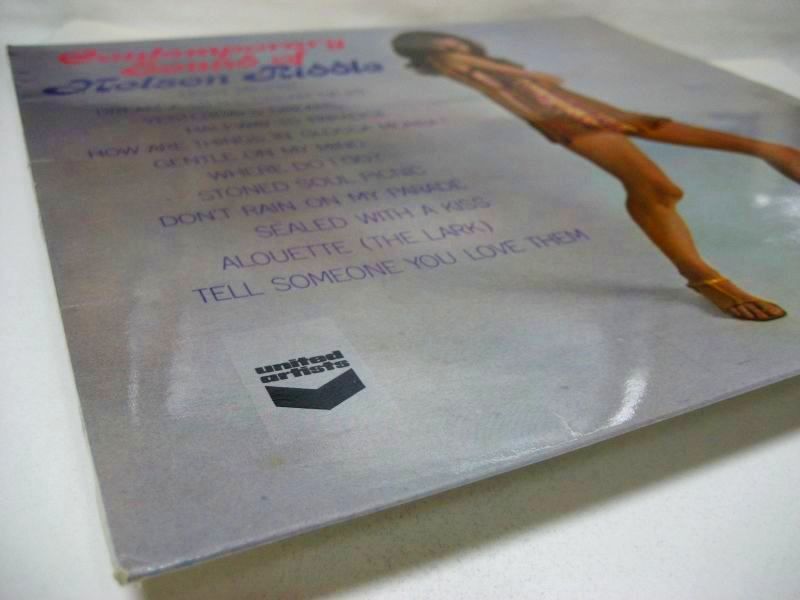 Contemporary
Sound of
Nelson Riddle
HALFWAY TO PARADISE
HOW ARE THINGS IN GLOCCA MORRA?
GENTLE ON MY MIND
WHERE DO I GO?
STONED SOUL PICNIC
DON'T RAIN ON MY PARADE
SEALED WITH A KISS
ALOUETTE (THE LARK)
TELL SOMEONE YOU LOVE THEM
united
artists